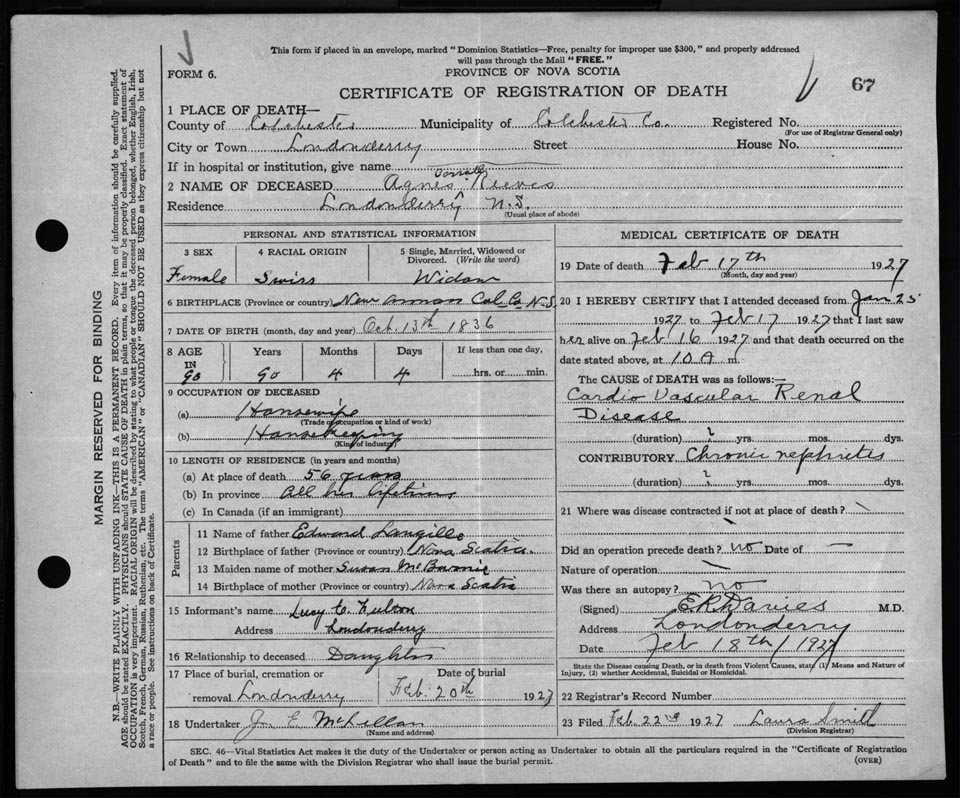 This form if placed in an envelope, marked "Dominion Statistics—Free, penalty for improper use $300," and properly addressed
will pass through the Mail "FREE."
FORM 6.
PROVINCE OF NOVA SCOTIA
67
CERTIFICATE OF REGISTRATION OF DEATH
1 PLACE OF DEATH—
County of Colchester Municipality of Colchester Co. Registered No.
(For use of Registrar General only)
City or Town Londonderry Street House No.
If in hospital or institution, give name
2 NAME OF DECEASED Agnes Reeves
Residence Londonderry N.S.
(Usual place of abode)
PERSONAL AND STATISTICAL INFORMATION
3 SEX 4 RACIAL ORIGIN 5 Single, Married, Widowed or Divorced. (Write the word)
Female Swiss Widow
6 BIRTHPLACE (Province or country) New Annan Col. Co. N.S.
7 DATE OF BIRTH (month, day and year) Oct. 13th 1836
8 AGE IN Years Months Days If less than one day,
90 90 4 4 hrs. or min.
9 OCCUPATION OF DECEASED
(a) Housewife
(Trade or occupation or kind of work)
(b) Housekeeping
(Kind of industry)
10 LENGTH OF RESIDENCE (in years and months)
(a) At place of death 56 years
(b) In province All her lifetime
(c) In Canada (if an immigrant)
Parents
11 Name of father Edward Langille
12 Birthplace of father (Province or country) Nova Scotia.
13 Maiden name of mother Susan
14 Birthplace of mother (Province or country) Nova Scotia
15 Informant's name Lucy C. Fulton
Address Londonderry
16 Relationship to deceased Daughter
17 Place of burial, cremation or removal Londonderry Date of burial Feb. 20th 1927
18 Undertaker J. E. McLellan
(Name and address)
MEDICAL CERTIFICATE OF DEATH
19 Date of death Feb 17th 1927
(Month, day and year)
20 I HEREBY CERTIFY that I attended deceased from Jan 25
1927 to Feb 17 1927 that I last saw
her alive on Feb 16 1927 and that death occurred on the
date stated above, at 10 A m.
The CAUSE of DEATH was as follows:—
Cardio Vascular Renal
Disease
(duration) ? yrs. mos. dys.
CONTRIBUTORY Chronic nephritis
(duration) ? yrs. mos. dys.
21 Where was disease contracted if not at place of death?
Did an operation precede death? no Date of —
Nature of operation
Was there an autopsy? no
(Signed) E R Davies M.D.
Address Londonderry
Date Feb 18th / 1927
State the Disease causing Death, or in death from Violent Causes, state (1) Means and Nature of
Injury, (2) whether Accidental, Suicidal or Homicidal.
22 Registrar's Record Number
23 Filed Feb. 22nd 1927 Laura Smith
(Division Registrar)
SEC. 46—Vital Statistics Act makes it the duty of the Undertaker or person acting as Undertaker to obtain all the particulars required in the "Certificate of Registration
of Death" and to file the same with the Division Registrar who shall issue the burial permit.
(OVER)
MARGIN RESERVED FOR BINDING
N.B.—WRITE PLAINLY WITH UNFADING INK—THIS IS A PERMANENT RECORD. Every item of information should be carefully supplied.
AGE should be stated EXACTLY. PHYSICIANS should STATE CAUSE OF DEATH in plain terms, so that it may be properly classified. Exact statement of
OCCUPATION is very important. RACIAL ORIGIN will be described by stating to what people or tongue the deceased person belonged, whether English, Irish,
Scotch, French, German, Russian, Ruthenian, etc. The terms "AMERICAN" or "CANADIAN" SHOULD NOT BE USED as they express citizenship but not
a race or people. See instructions on back of Certificate.